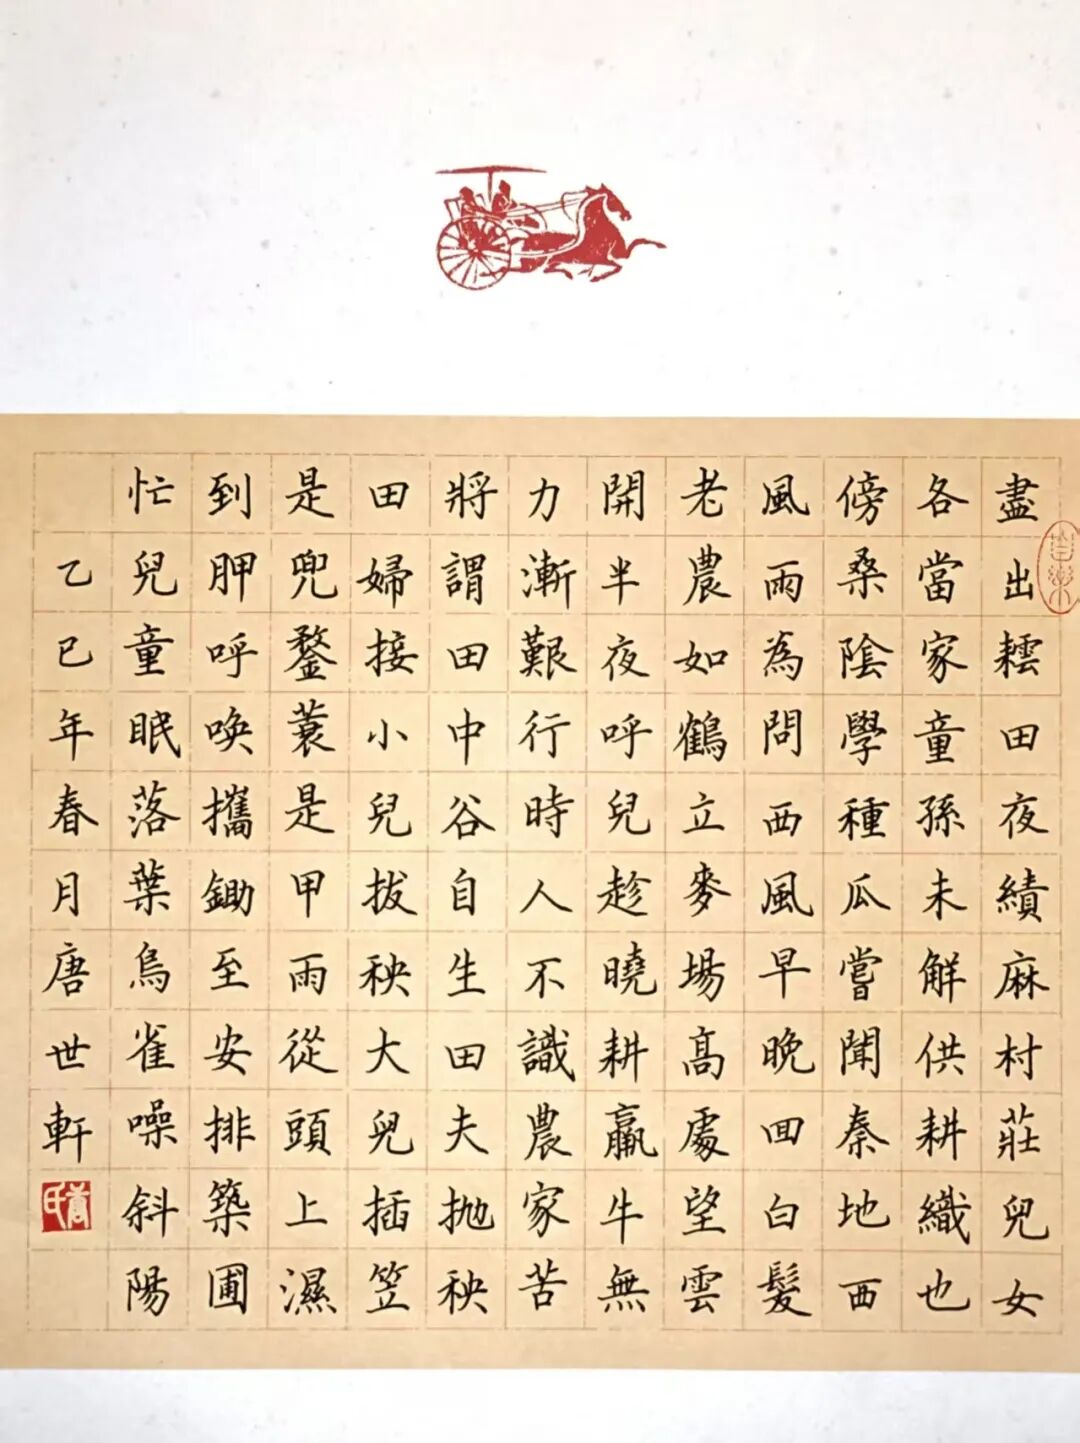 盡出耘田夜績麻村莊兒女
各當家童孫未解供耕織也
傍桑陰學種瓜嘗聞秦地西
風雨為問西風早晚回白髮
老農如鶴立麥場高處望雲
開半夜呼兒趁曉耕羸牛無
力漸艱行時人不識農家苦
將謂田中谷自生田夫拋秧
田婦接小兒拔秧大兒插笠
是兜鍪蓑是甲雨從頭上濕
到胛呼喚攜鋤至安排築圃
忙兒童眠落葉烏雀噪斜陽
乙巳年春月唐世軒